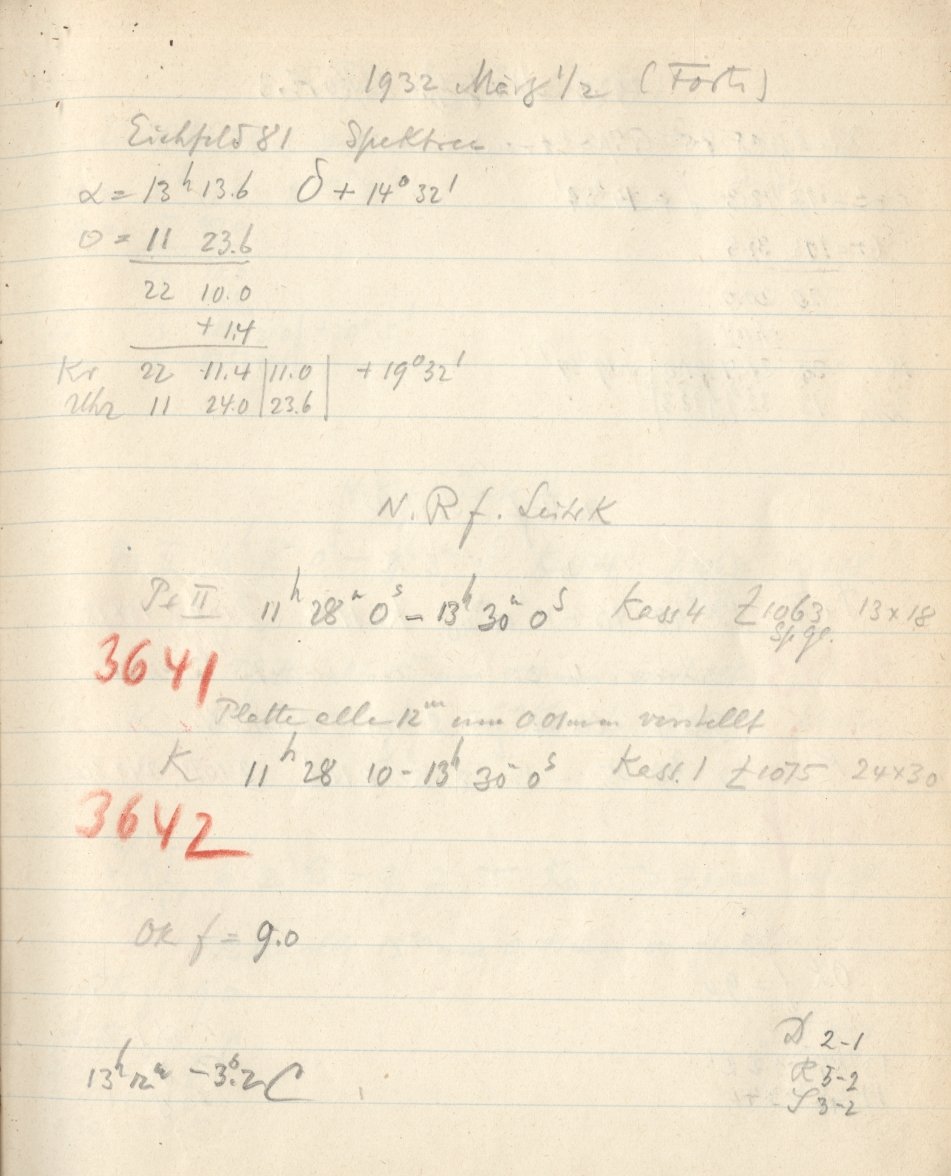 1932 März 1/2 (Forts)
Eichfeld 81 Spektren
α = 13h 13.6 δ + 14° 32'
θ = 11 23.6
22 10.0
+ 1.4
Kr 22 11.4 | 11.0 | + 19° 32'
Uhr 11 24.0 | 23.6 |
N. R. f.
Ps II 11h 28m 0s – 13h 30m 0s Kass 4 Z 1063 13 x 18
Sp. gr.
3641
Platte alle 12m um 0.01mm verstellt
K 11h 28 10 – 13h 30 0s Kass. 1 Z 1075 24x30
3642
Ok f = 9.0
D 2-1
13h 12m – 3.°2 C R 5-2
S 3-2